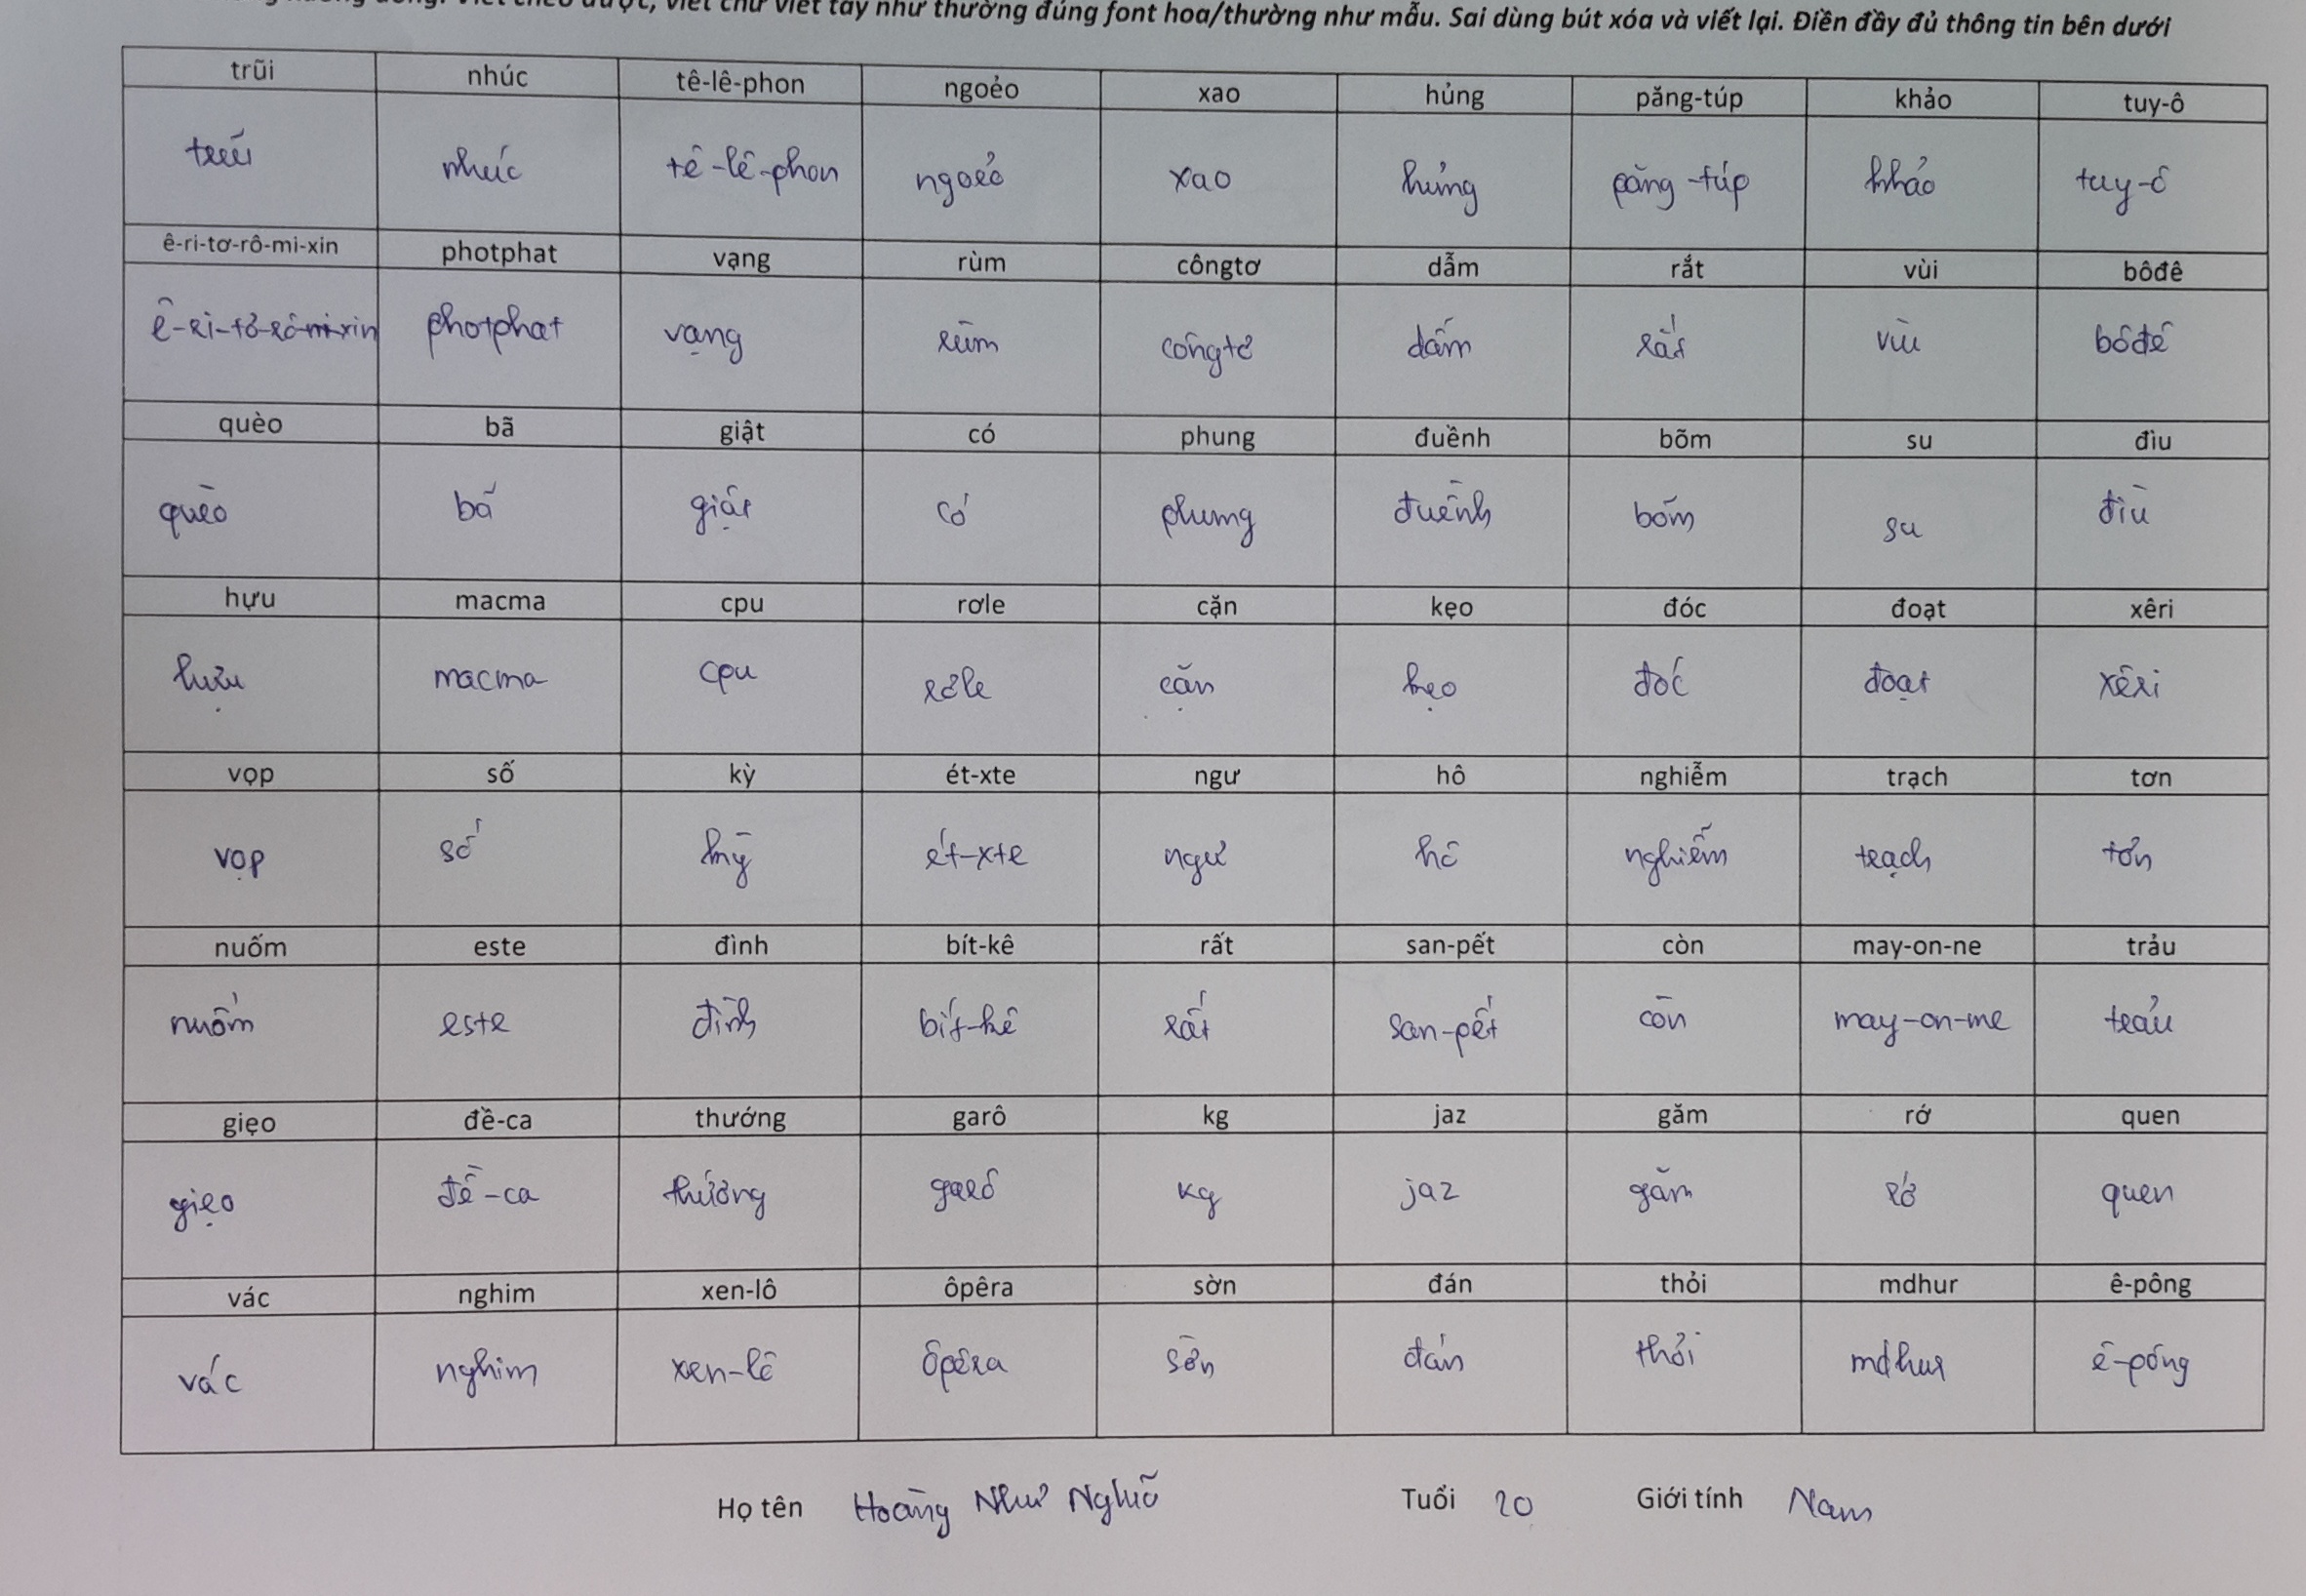 viết chữ viết tay như thường đúng font hoa/thường như mẫu. Sai dùng bút xóa và viết lại. Điền đầy đủ thông tin bên dưới
trũi nhúc tê-lê-phon ngoẻo xao hủng păng-túp khảo tuy-ô
trũi nhúc tê-lê-phon ngoẻo xao hủng păng-túp khảo tuy-ô
ê-ri-tơ-rô-mi-xin photphat vạng rùm côngtơ dẫm rắt vùi bôđê
ê-ri-tơ-rô-mi-xin photphat vạng rùm côngtơ dẫm rắt vùi bôđê
quèo bã giật có phung đuềnh bõm su đìu
quèo bã giật có phung đuềnh bõm su đìu
hựu macma cpu rơle cặn kẹo đóc đoạt xêri
hựu macma cpu rơle cặn kẹo đóc đoạt xêri
vọp số kỳ ét-xte ngư hô nghiễm trạch tơn
vọp số kỳ ét-xte ngư hô nghiễm trạch tơn
nuốm este đình bít-kê rất san-pết còn may-on-ne trảu
nuốm este đình bít-kê rất san-pết còn may-on-ne trảu
giẹo đề-ca thướng garô kg jaz găm rớ quen
giẹo đề-ca thướng garô kg jaz găm rớ quen
vác nghim xen-lô ôpêra sờn đán thỏi mdhur ê-pông
vác nghim xen-lô ôpêra sờn đán thỏi mdhur ê-pông
Họ tên Hoàng Như Nghĩa Tuổi 20 Giới tính Nam